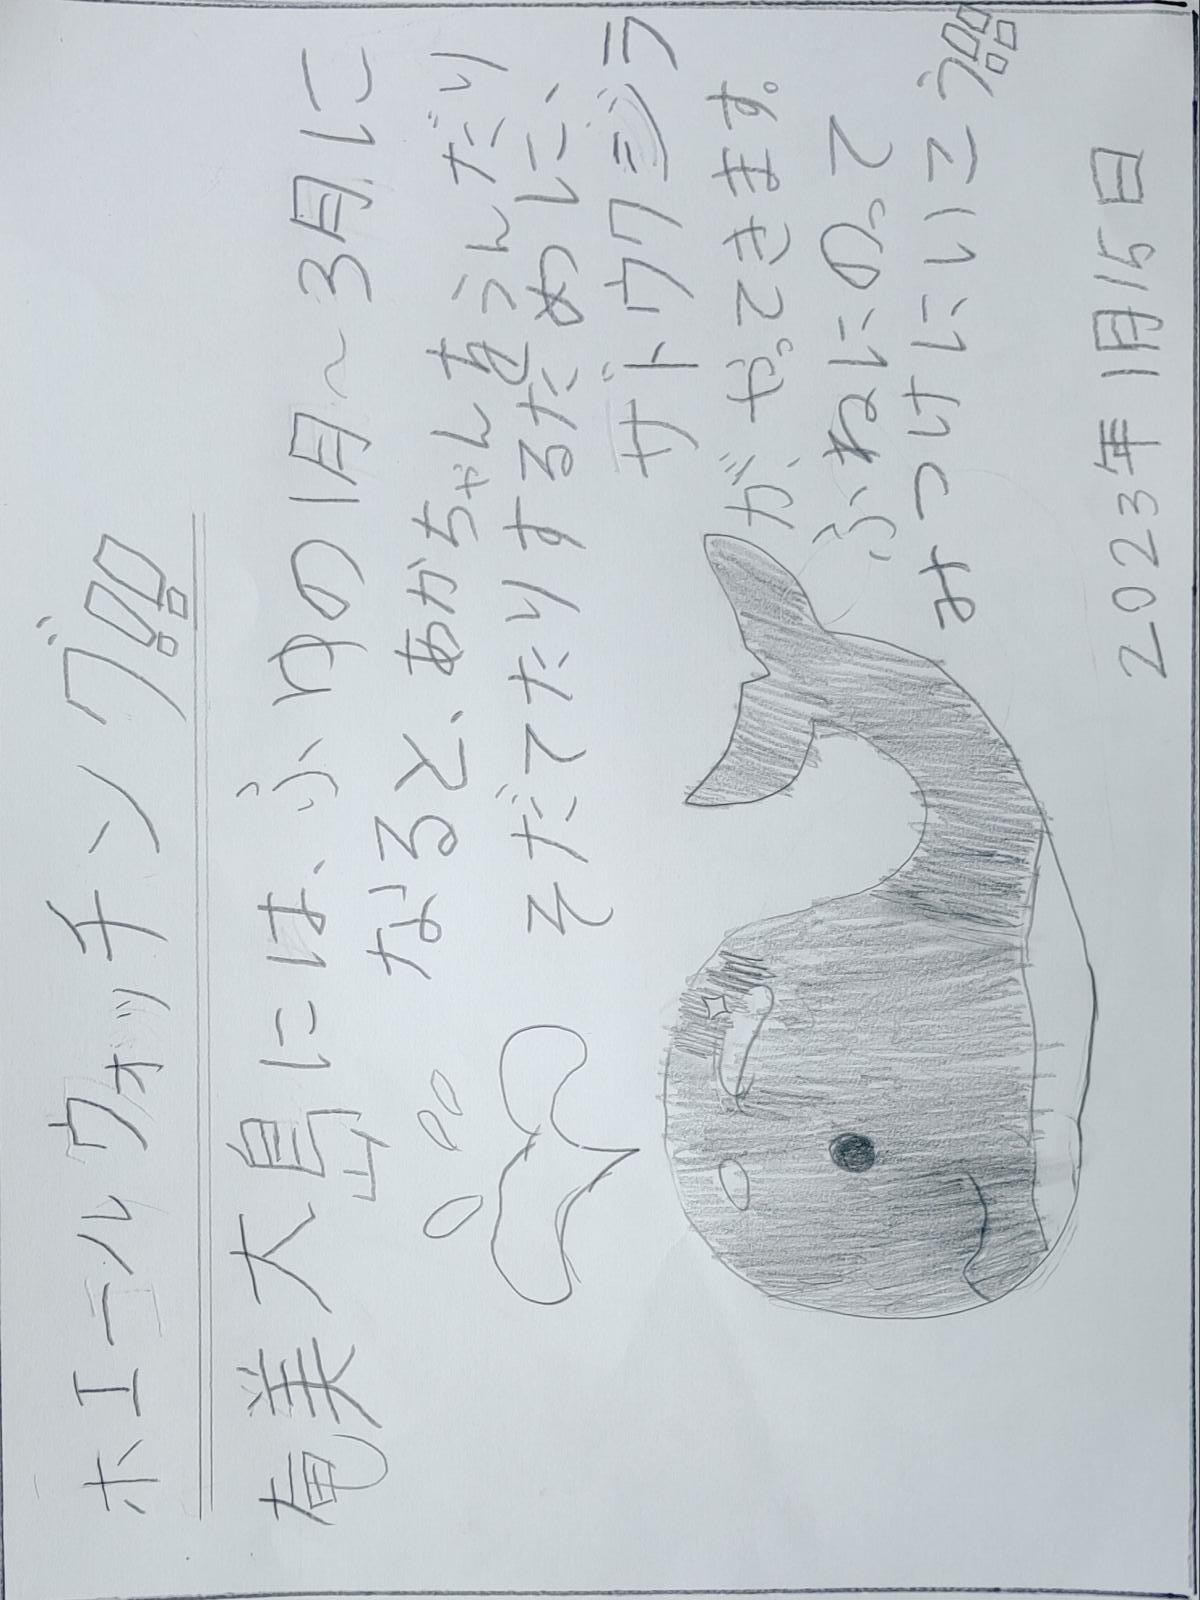 ホエールウォッチング!!
奄美大島には、ふゆの1月~3月に
なると、あかちゃんをうんだり
そだてたりするために、
ザトウクジラ
がやってきます。
ふねにのって
みつけにいこう!!
2023年1月15日